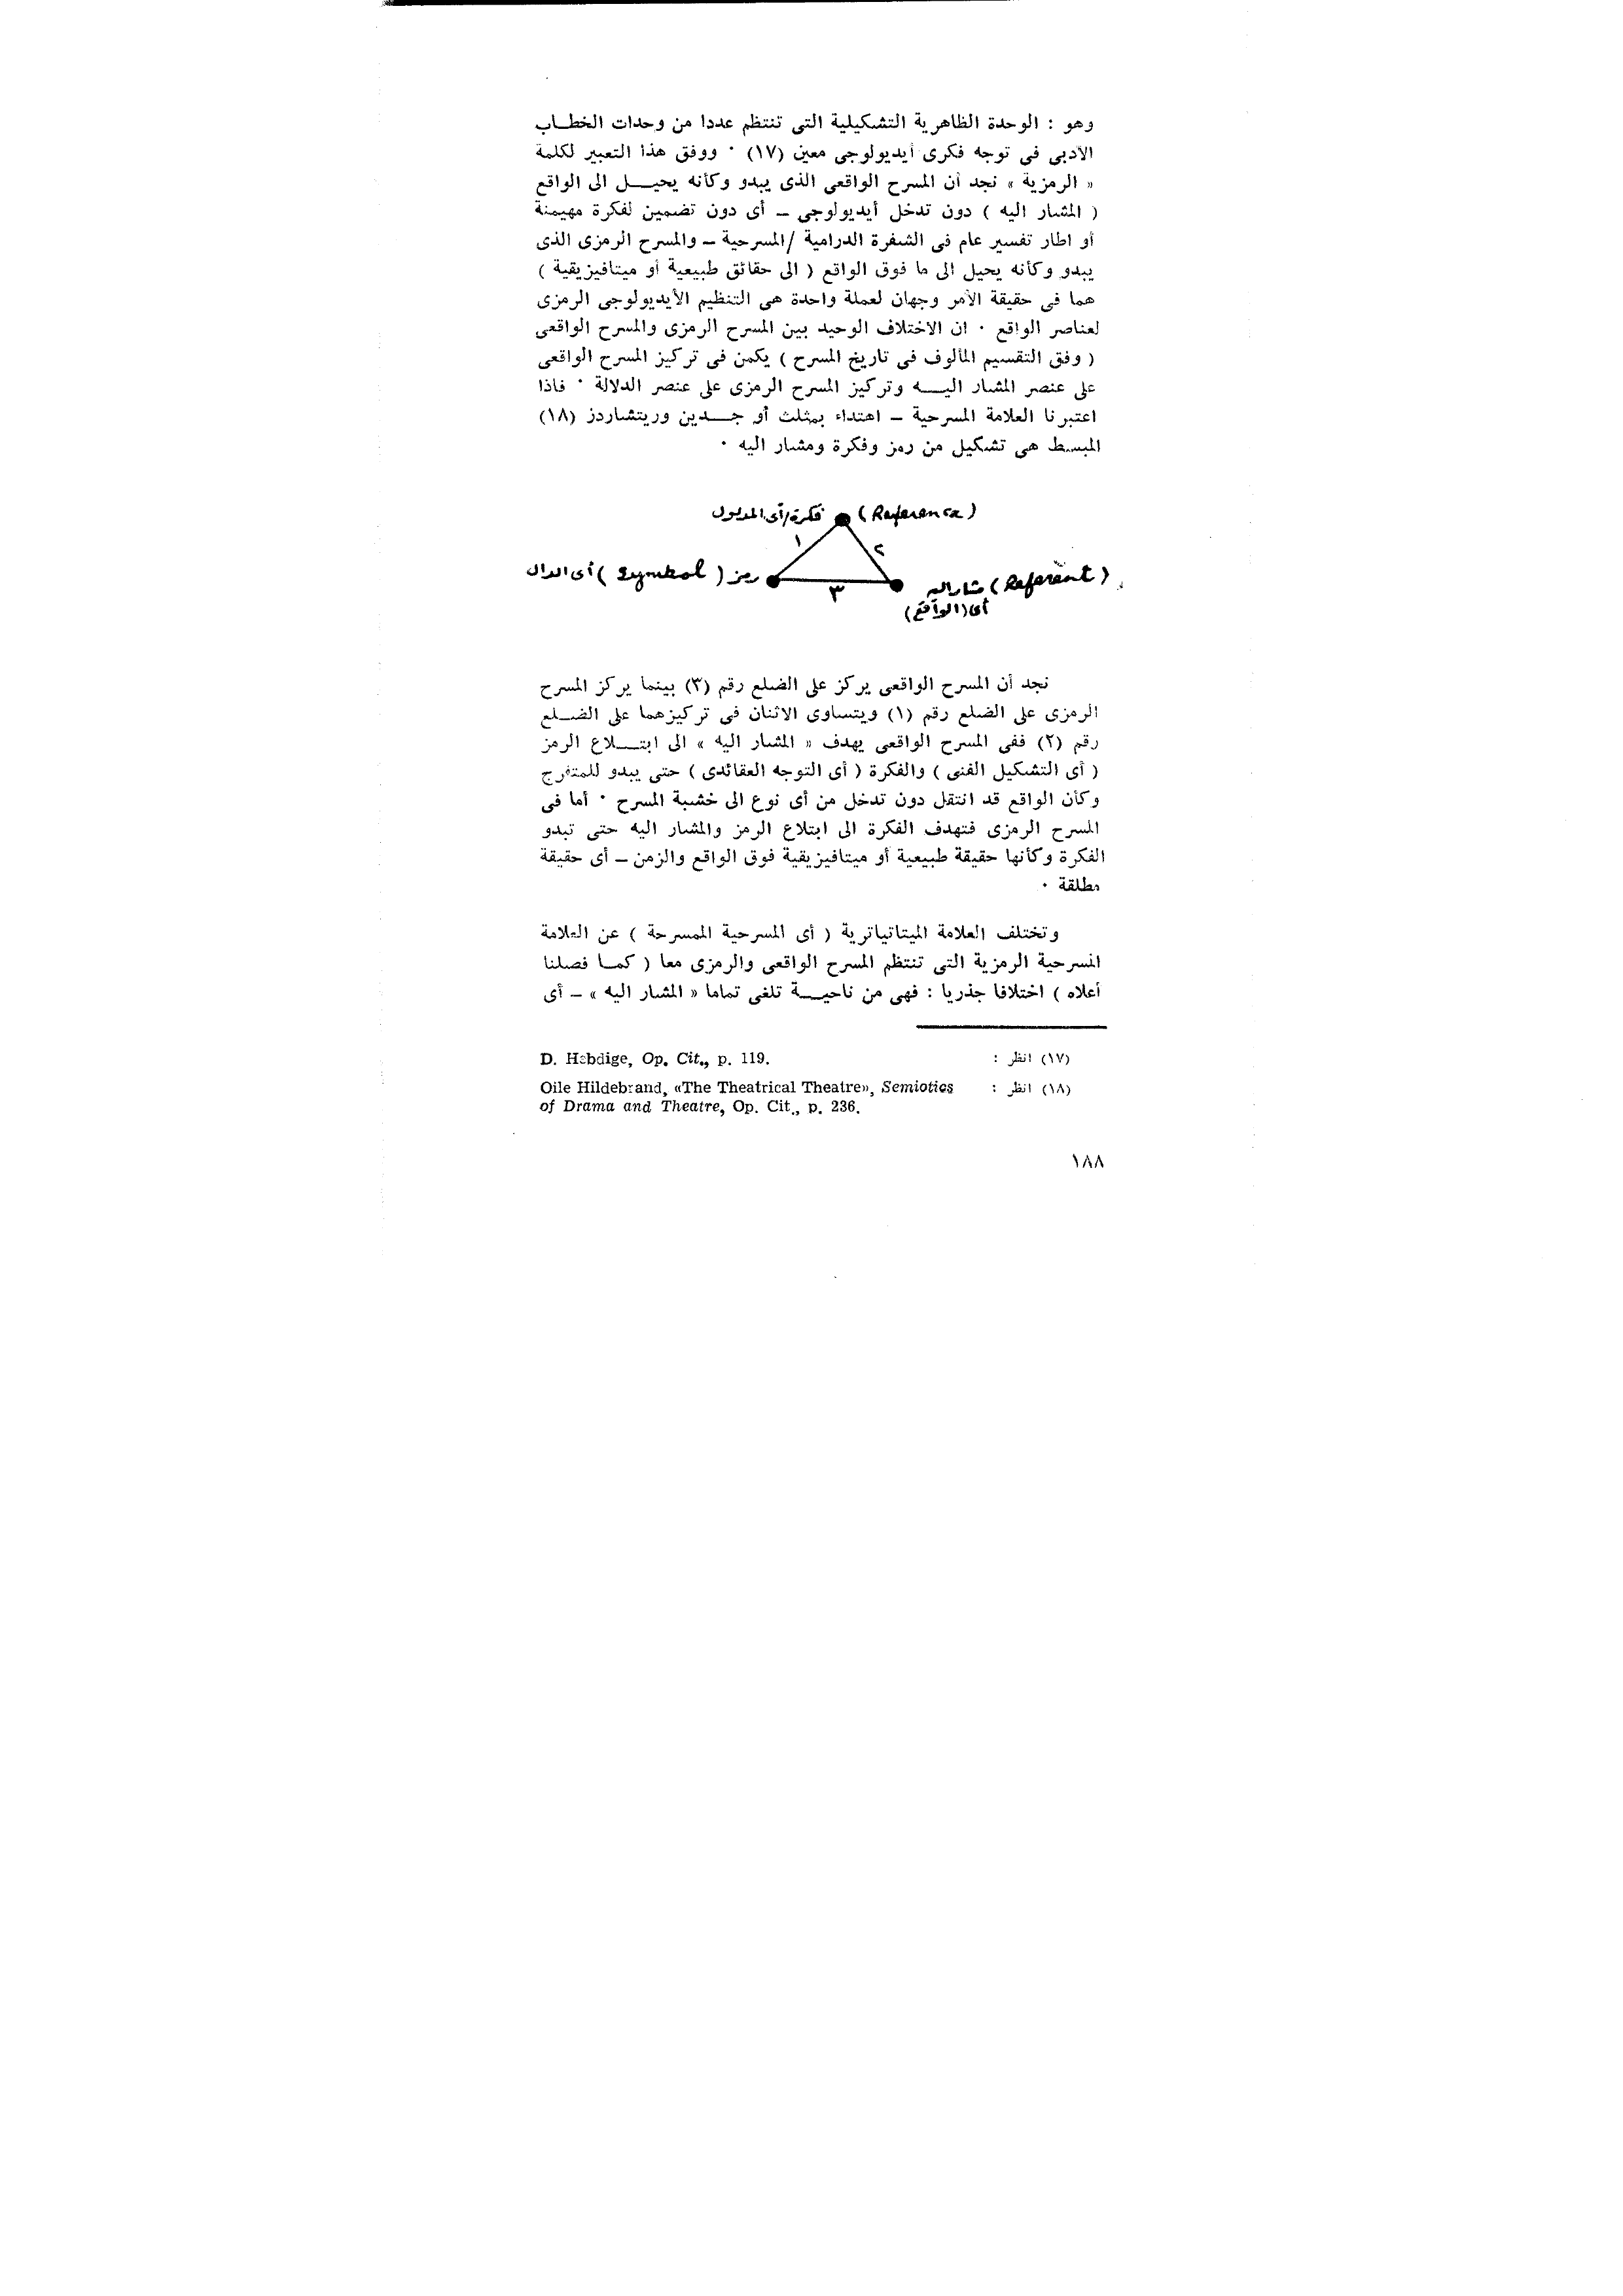 وهو : الوحدة الظاهرية التشكيلية التى تنتظم عددا من وحدات الخطاب
الأدبى فى توجه فكرى أيديولوجى معين (١٧) ٠ ووفق هذا التعبير لكلمة
« الرمزية » نجد أن المسرح الواقعى الذى يبدو وكأنه يحيل الى الواقع
( المشار اليه ) دون تدخل أيديولوجى – أى دون تضمين لفكرة مهيمنة
أو اطار تفسير عام فى الشفرة الدرامية /المسرحية – والمسرح الرمزى الذى
يبدو وكأنه يحيل الى ما فوق الواقع ( الى حقائق طبيعية أو ميتافيزيقية )
هما فى حقيقة الأمر وجهان لعملة واحدة هى التنظيم الأيديولوجى الرمزى
لعناصر الواقع ٠ ان الاختلاف الوحيد بين المسرح الرمزى والمسرح الواقعى
( وفق التقسيم المألوف فى تاريخ المسرح ) يكمن فى تركيز المسرح الواقعى
على عنصر المشار اليه وتركيز المسرح الرمزى على عنصر الدلالة ٠ فاذا
اعتبرنا العلامة المسرحية – اهتداء بمثلث أوجدين وريتشاردز (١٨)
المبسط هى تشكيل من رمز وفكرة ومشار اليه ٠
(Reference) فكرة/أى المدلول
١
٢
رمز (Symbol) أى الدال
٣
(Referent) مشار اليه
أى (الواقع)
نجد أن المسرح الواقعى يركز على الضلع رقم (٣) بينما يركز المسرح
الرمزى على الضلع رقم (١) ويتساوى الاثنان فى تركيزهما على الضلع
رقم (٢) ففى المسرح الواقعى يهدف « المشار اليه » الى ابتلاع الرمز
( أى التشكيل الفنى ) والفكرة ( أى التوجه العقائدى ) حتى يبدو للمتفرج
وكأن الواقع قد انتقل دون تدخل من أى نوع الى خشبة المسرح ٠ أما فى
المسرح الرمزى فتهدف الفكرة الى ابتلاع الرمز والمشار اليه حتى تبدو
الفكرة وكأنها حقيقة طبيعية أو ميتافيزيقية فوق الواقع والزمن – أى حقيقة
مطلقة ٠
وتختلف العلامة الميتاتياترية ( أى المسرحية الممسرحة ) عن العلامة
المسرحية الرمزية التى تنتظم المسرح الواقعى والرمزى معا ( كما فصلنا
أعلاه ) اختلافا جذريا : فهى من ناحية تلغى تماما « المشار اليه » – أى
(١٧) انظر : D. Hebdige, Op. Cit., p. 119.
(١٨) انظر : Oile Hildebrand, «The Theatrical Theatre», Semiotics
of Drama and Theatre, Op. Cit., p. 236.
١٨٨